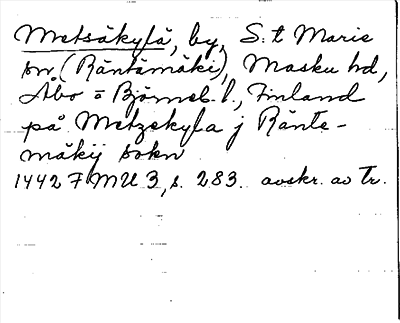 Metsäkylä, by, S:t Marie
sn (Räntämäki), Masku hd,
Åbo o Björneb. l., Finland
på Metzekyla j Ränte-
mäkij sokn
1442 FMU 3, s. 283. avskr. av Tr.